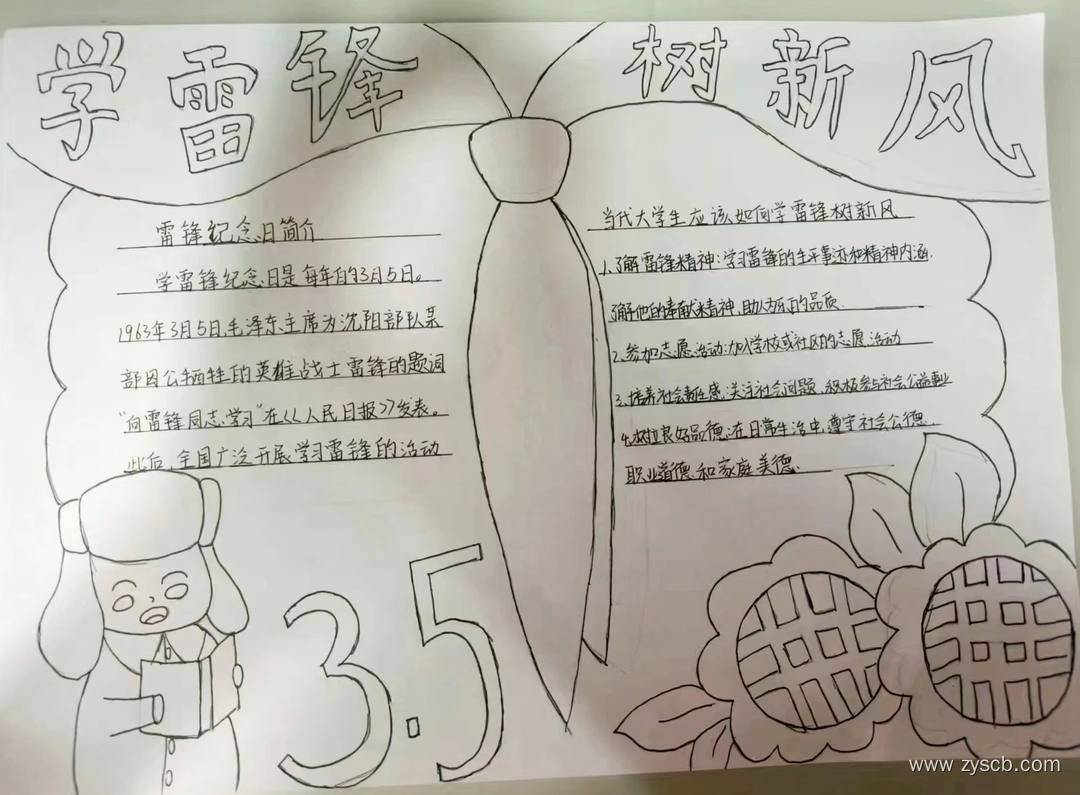 学雷锋 树新风
雷锋纪念日简介
学雷锋纪念日是每年的3月5日。
1963年3月5日毛泽东主席为沈阳部队某
部因公牺牲的英雄战士雷锋的题词
"向雷锋同志学习"在<<人民日报>>发表。
此后，全国广泛开展学习雷锋的活动
当代大学生应该如何学雷锋树新风
1、了解雷锋精神:学习雷锋的生平事迹和精神内涵.
了解他的奉献精神,助人为乐的品质.
2、参加志愿活动:加入学校或社区的志愿活动
3、培养社会责任感:关注社会问题、积极参与社会公益事业
4、树立良好品德:在日常生活中,遵守社会公德、
职业道德和家庭美德.
3.5
www.zyscb.com